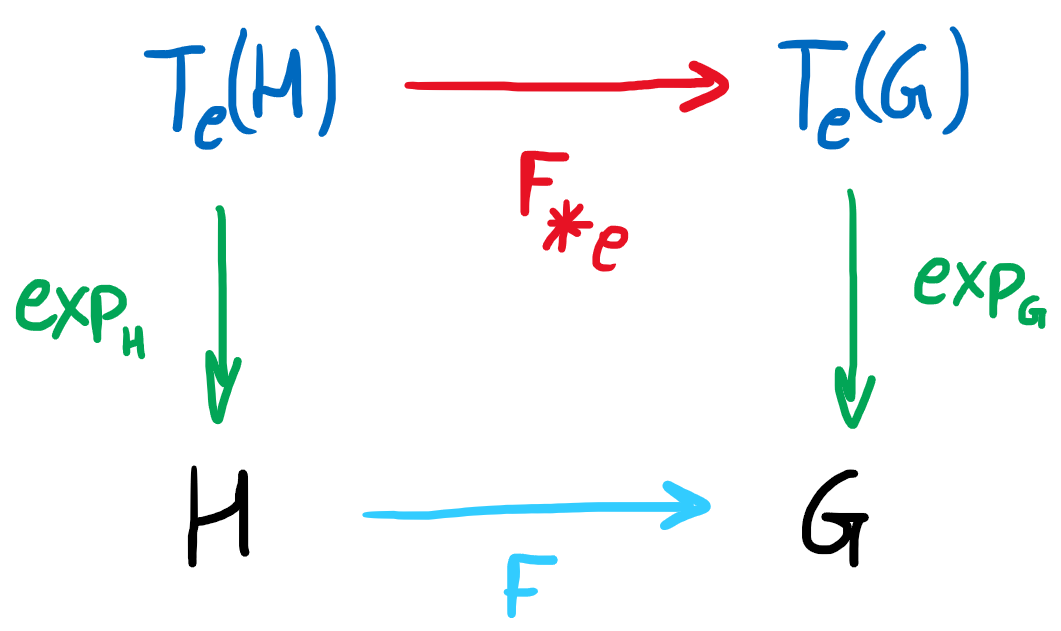 T_e(H) T_e(G)
F_{*e}
exp_H exp_G
H G
F